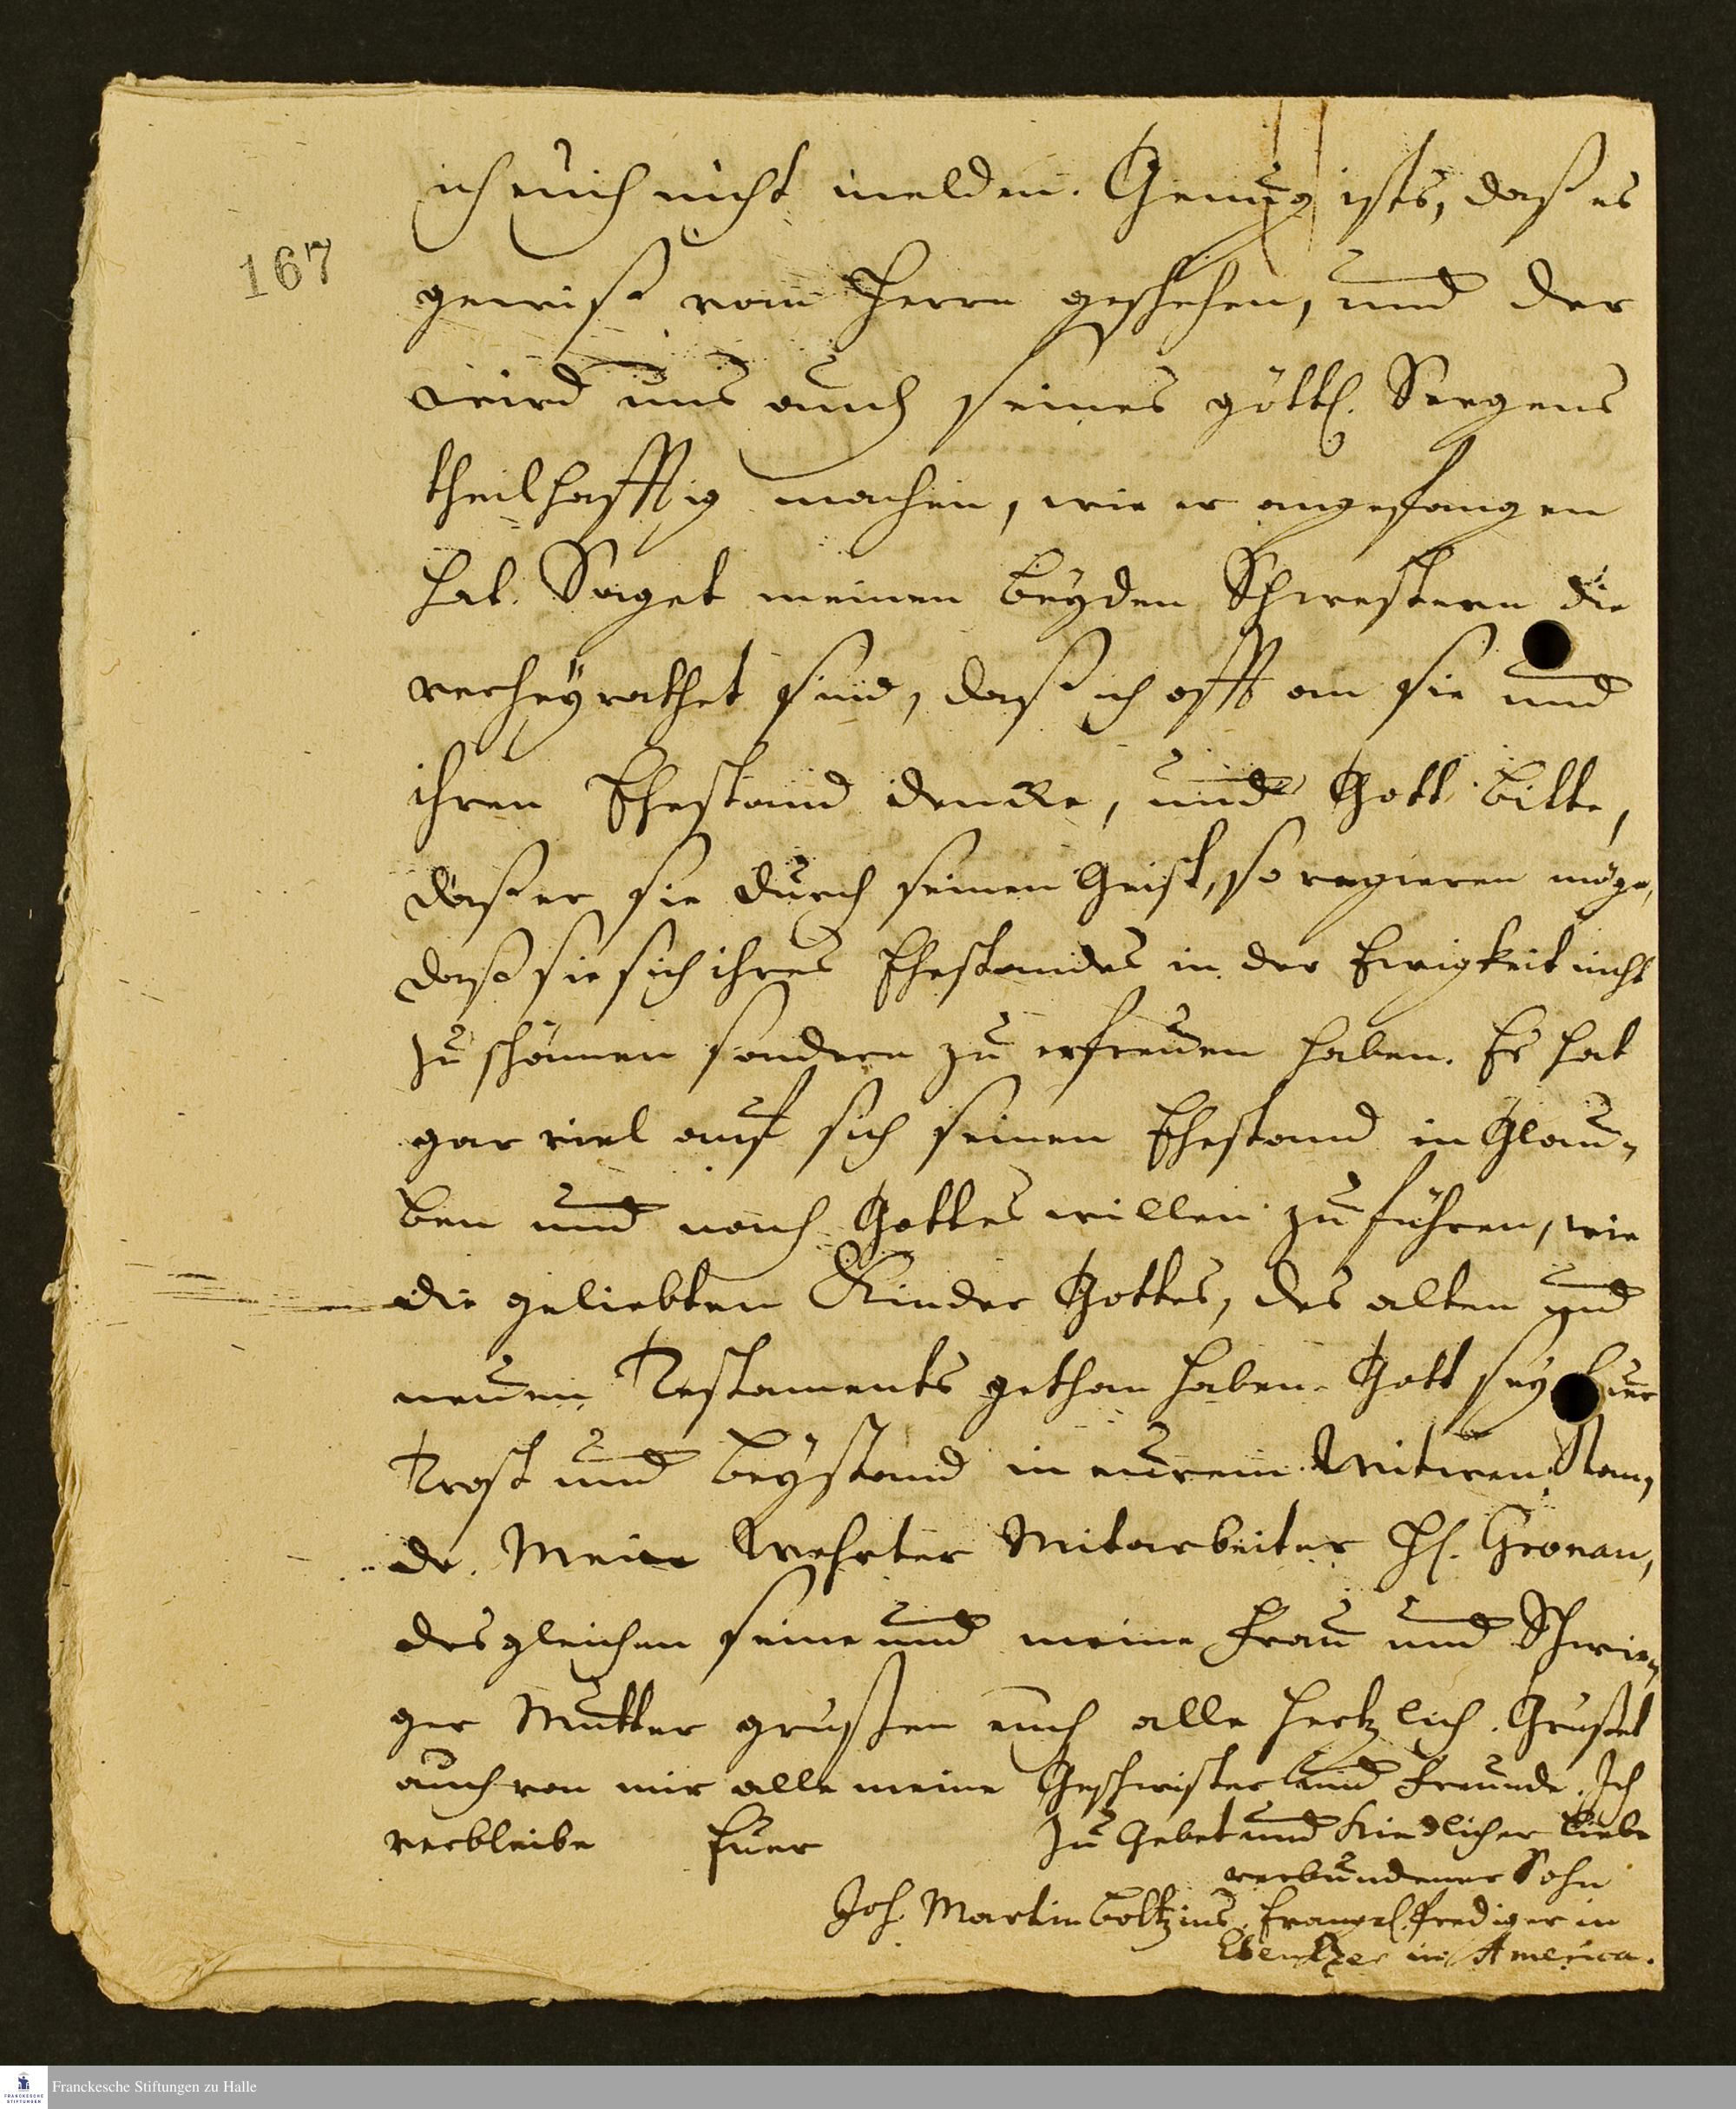 ich euch nicht melden. Genug ists, daß es
167
gewiß vom Herrn geschehen, und der
wird uns auch seines göttl. Seegens
theilhafftig machen, wie er angefangen
hat. Saget meinen beyden Schwestern die
verheyrathet sind, daß ich offt an sie und
ihren Ehestand dencke, und Gott bitte,
daß er sie durch seinen Geist, so regieren möge,
daß sie sich ihres Ehestandes in der Ewigkeit nicht
zu schämen sondern zu erfreuen haben. Es hat
gar viel auf sich seinen Ehestand in Glau-
ben und nach Gottes willen zu führen, wie
die geliebten Kinder Gottes, des alten und
neuen Testaments gethan haben. Gott sey Euer
Trost und Beystand in eurem Witwen Stan-
de. Mein Wehrter Mitarbeiter H. Gronau,
desgleichen seine und meine Frau und Schwie-
ger Mutter grüßen euch alle hertzlich. Grüßet
auch von mir alle meine Geschwister und Freunde. Ich
verbleibe Euer zu Gebet und Kindlicher Liebe
verbundener Sohn
Joh. Martin Boltzius, Evangel. Prediger in
Ebenezer in America.
Franckesche Stiftungen zu Halle
FRANCKESCHE
STIFTUNGEN